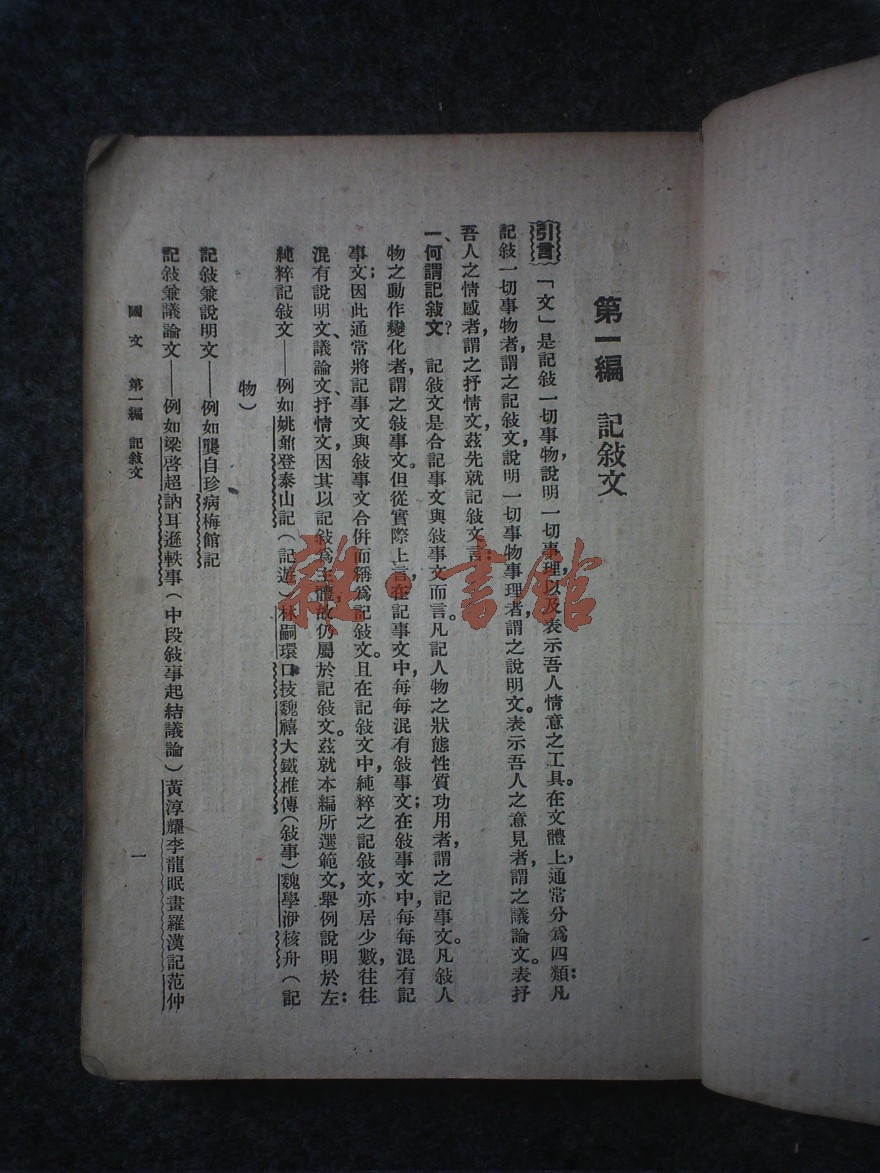 第一編　記敍文
引言　「文」是記敍一切事物，說明一切事理，以及表示吾人情意之工具。在文體上，通常分爲四類：凡
記敍一切事物者，謂之記敍文，說明一切事物事理者，謂之說明文。表示吾人之意見者，謂之議論文。表抒
吾人之情感者，謂之抒情文，茲先就記敍文言：
一、何謂記敍文？　記敍文是合記事文與敍事文而言。凡記人物之狀態性質功用者，謂之記事文。凡敍人
物之動作變化者，謂之敍事文。但從實際上言，在記事文中，每每混有敍事文；在敍事文中，每每混有記
事文；因此通常將記事文與敍事文合併而稱爲記敍文。且在記敍文中，純粹之記敍文，亦居少數，往往
混有說明文、議論文、抒情文，因其以記敍爲主體，故仍屬於記敍文。茲就本編所選範文，舉例說明於左：
純粹記敍文——例如姚鼐登泰山記（記遊）林嗣環口技魏禧大鐵椎傳（敍事）魏學洢核舟（記
物）
記敍兼說明文——例如龔自珍病梅館記
記敍兼議論文——例如梁啓超訥耳遜軼事（中段敍事起結議論）黃淳耀李龍眠畫羅漢記范仲
國文　第一編　記敍文
一
雜·書館